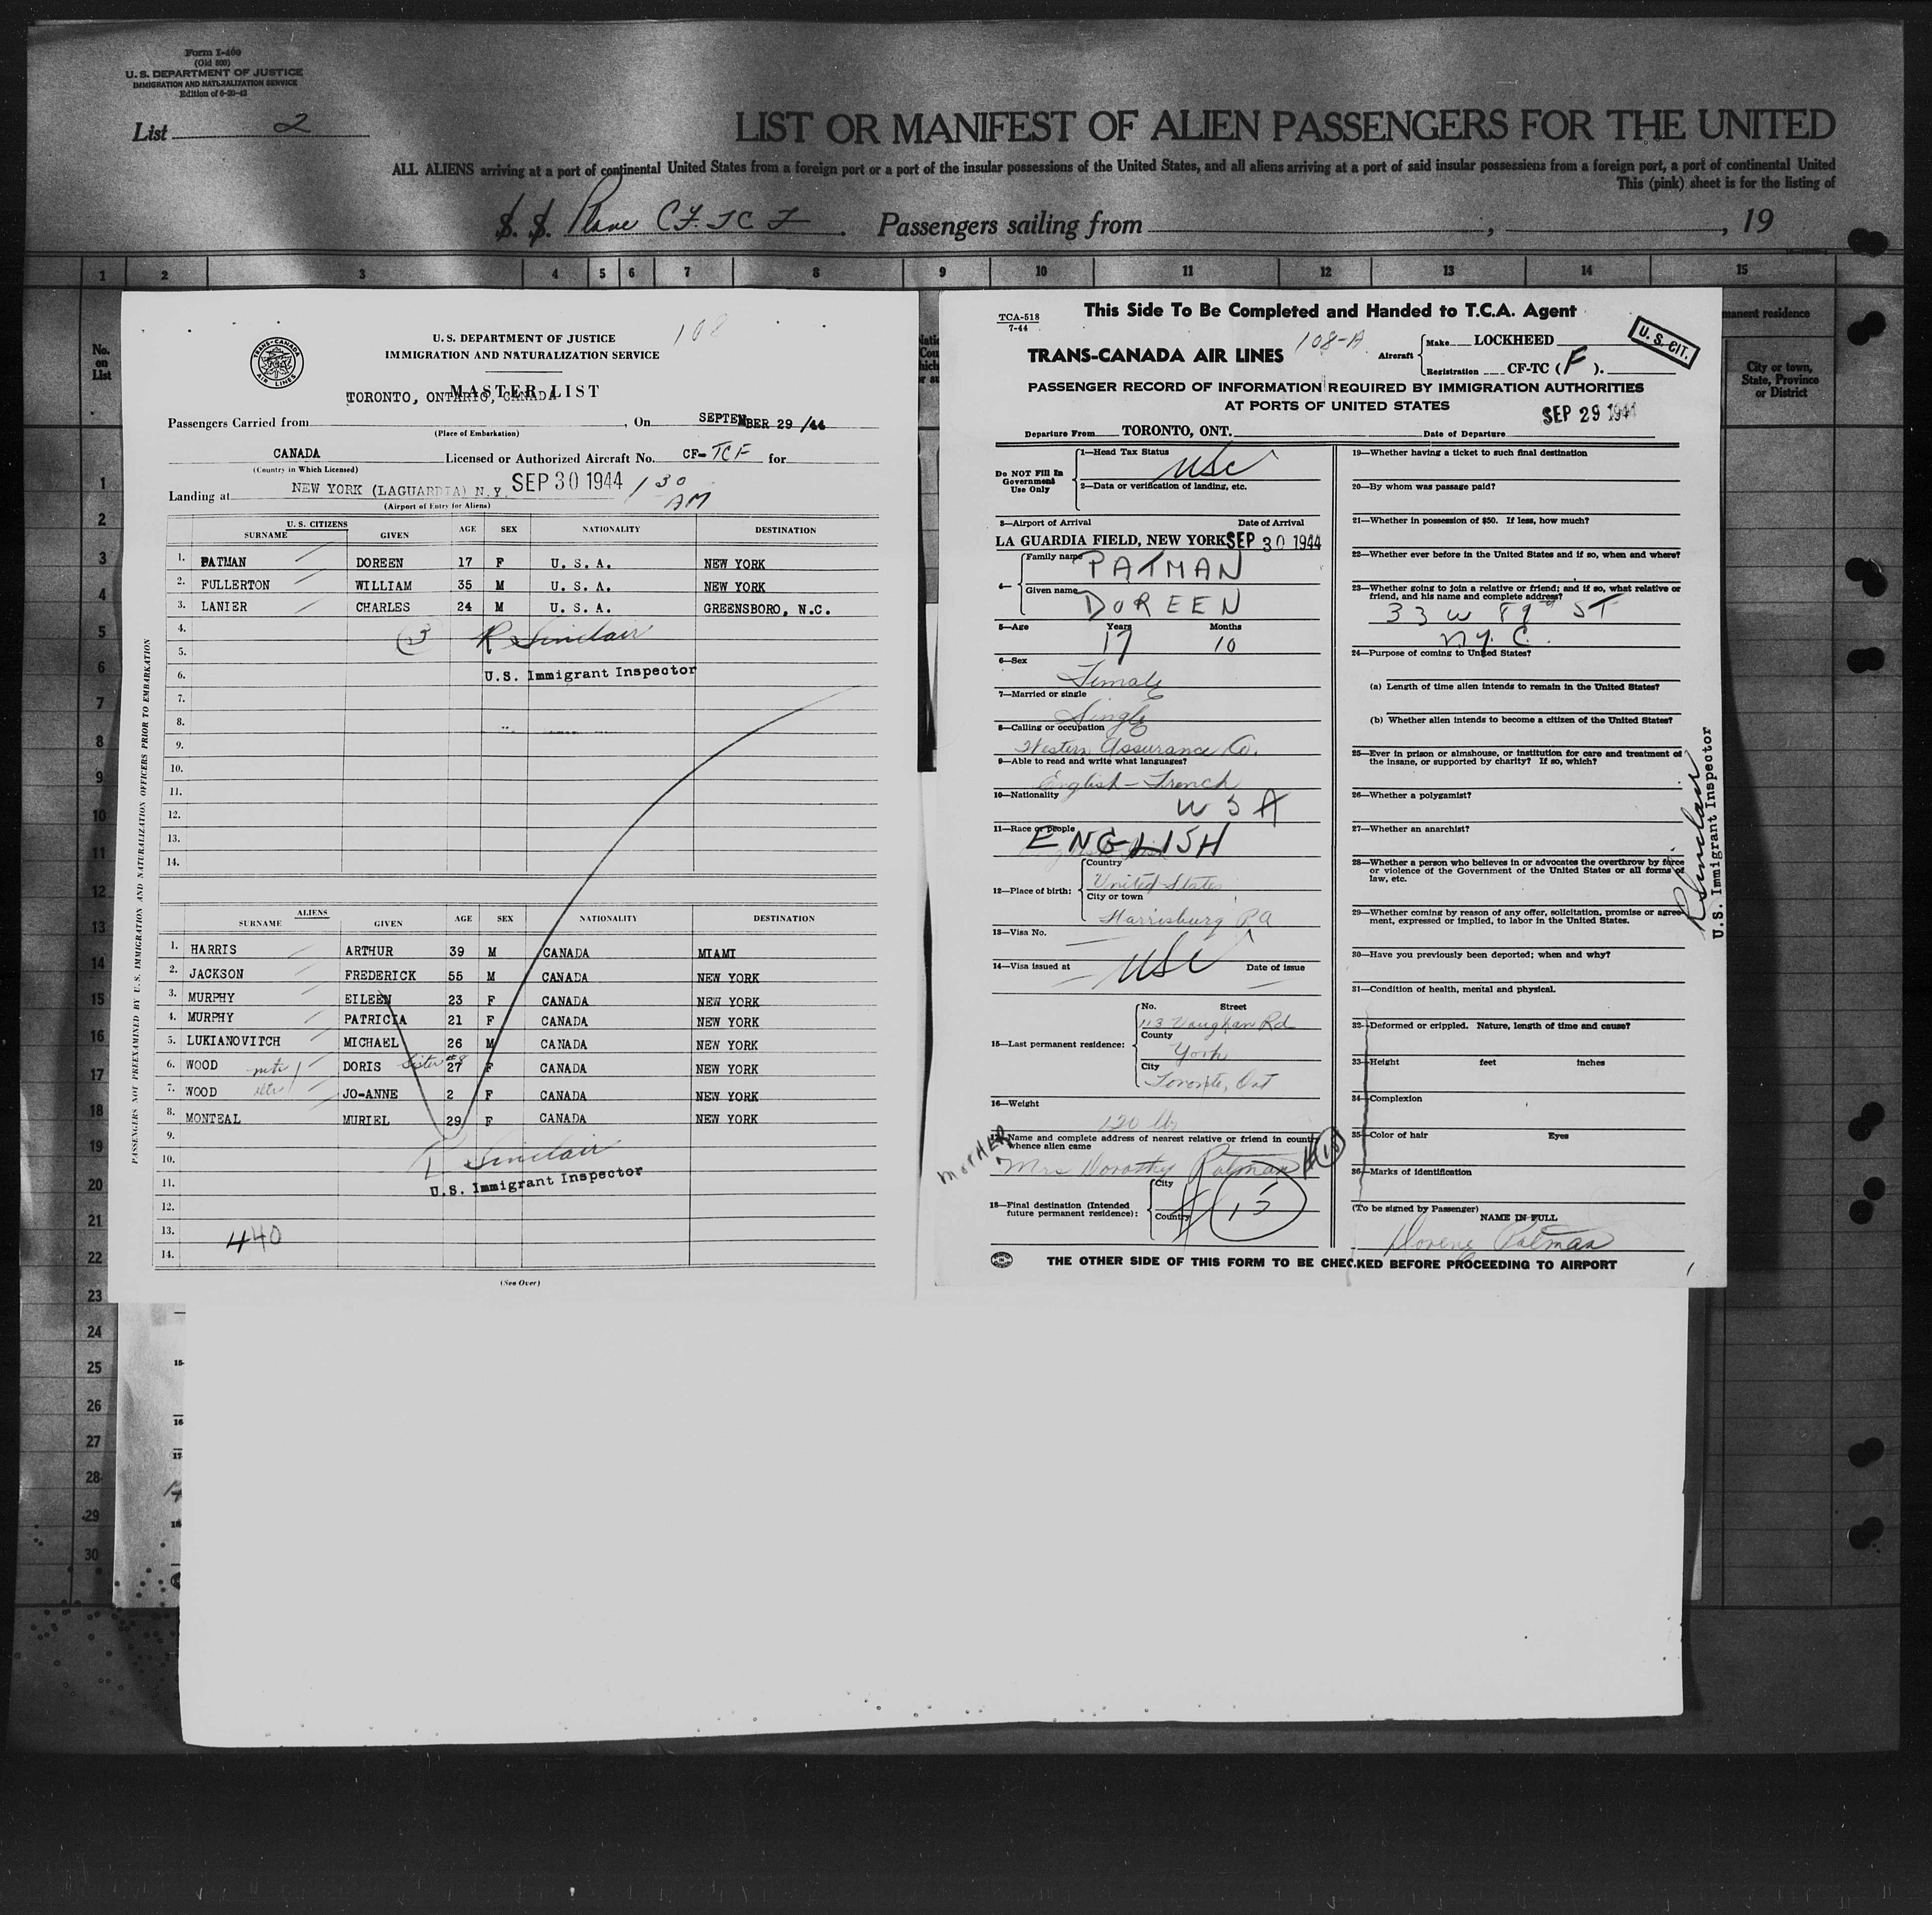 Form I-460
(Old 500)
U. S. DEPARTMENT OF JUSTICE
IMMIGRATION AND NATURALIZATION SERVICE
Edition of 6-20-42
List 2
LIST OR MANIFEST OF ALIEN PASSENGERS FOR THE UNITED
ALL ALIENS arriving at a port of continental United States from a foreign port or a port of the insular possessions of the United States, and all aliens arriving at a port of said insular possessions from a foreign port, a port of continental United
This (pink) sheet is for the listing of
S. S. Plane CF. TC F. Passengers sailing from , , 19
1 2 3 4 5 6 7 8 9 10 11 12 13 14 15
No.
on
List
manent residence
City or town,
State, Province
or District
1
2
3
4
5
6
7
8
9
10
11
12
13
14
15
16
17
18
19
20
21
22
23
24
25
26
27
28
29
30
PASSENGERS NOT PREEXAMINED BY U. S. IMMIGRATION AND NATURALIZATION OFFICERS PRIOR TO EMBARKATION
TRANS-CANADA
AIR LINES
108
U. S. DEPARTMENT OF JUSTICE
IMMIGRATION AND NATURALIZATION SERVICE
MASTER LIST
TORONTO, ONTARIO, CANADA
Passengers Carried from , On SEPTEMBER 29 /44
(Place of Embarkation)
CANADA Licensed or Authorized Aircraft No. CF-TCF for
(Country in Which Licensed)
Landing at NEW YORK (LAGUARDIA) N.Y. SEP 30 1944 1 30 AM
(Airport of Entry for Aliens)
U. S. CITIZENS
SURNAME GIVEN AGE SEX NATIONALITY DESTINATION
1. PATMAN DOREEN 17 F U. S. A. NEW YORK
2. FULLERTON WILLIAM 35 M U. S. A. NEW YORK
3. LANIER CHARLES 24 M U. S. A. GREENSBORO, N.C.
4.
3 R Sinclair
5.
6. U.S. Immigrant Inspector
7.
8.
9.
10.
11.
12.
13.
14.
ALIENS
SURNAME GIVEN AGE SEX NATIONALITY DESTINATION
1. HARRIS ARTHUR 39 M CANADA MIAMI
2. JACKSON FREDERICK 55 M CANADA NEW YORK
3. MURPHY EILEEN 23 F CANADA NEW YORK
4. MURPHY PATRICIA 21 F CANADA NEW YORK
5. LUKIANOVITCH MICHAEL 26 M CANADA NEW YORK
6. WOOD DORIS Sister #8 27 F CANADA NEW YORK
7. WOOD JO-ANNE 2 F CANADA NEW YORK
8. MONTEAL MURIEL 29 F CANADA NEW YORK
9.
10. R Sinclair
11. U.S. Immigrant Inspector
12.
13. 440
14.
(See Over)
TCA-518
7-44
This Side To Be Completed and Handed to T.C.A. Agent
TRANS-CANADA AIR LINES 108-A
Aircraft Make LOCKHEED
Registration CF-TC (F).
U. S. CIT.
PASSENGER RECORD OF INFORMATION REQUIRED BY IMMIGRATION AUTHORITIES
AT PORTS OF UNITED STATES
SEP 29 1944
Departure From TORONTO, ONT. Date of Departure
Do NOT Fill In
Government
Use Only
1—Head Tax Status USC
2—Data or verification of landing, etc.
3—Airport of Arrival Date of Arrival
LA GUARDIA FIELD, NEW YORK SEP 30 1944
4— Family name PATMAN
Given name DOREEN
5—Age Years 17 Months 10
6—Sex Female
7—Married or single Single
8—Calling or occupation
Western Assurance Co.
9—Able to read and write what languages?
English - French
10—Nationality USA
11—Race or people ENGLISH
12—Place of birth: Country United States
City or town Harrisburg PA
13—Visa No.
14—Visa issued at USC Date of issue
15—Last permanent residence: No. Street
113 Vaughan Rd
County York
City Toronto, Ont
16—Weight 120 lbs
17—Name and complete address of nearest relative or friend in country
whence alien came
MOTHER Mrs Dorothy Patman # 15
18—Final destination (Intended
future permanent residence): City
Country # 15
19—Whether having a ticket to such final destination
20—By whom was passage paid?
21—Whether in possession of $50. If less, how much?
22—Whether ever before in the United States and if so, when and where?
23—Whether going to join a relative or friend; and if so, what relative or
friend, and his name and complete address?
33 W ST
N.Y. C.
24—Purpose of coming to United States?
(a) Length of time alien intends to remain in the United States?
(b) Whether alien intends to become a citizen of the United States?
25—Ever in prison or almshouse, or institution for care and treatment of
the insane, or supported by charity? If so, which?
26—Whether a polygamist?
27—Whether an anarchist?
28—Whether a person who believes in or advocates the overthrow by force
or violence of the Government of the United States or all forms of
law, etc.
29—Whether coming by reason of any offer, solicitation, promise or agree-
ment, expressed or implied, to labor in the United States.
30—Have you previously been deported; when and why?
31—Condition of health, mental and physical.
32—Deformed or crippled. Nature, length of time and cause?
33—Height feet inches
34—Complexion
35—Color of hair Eyes
36—Marks of identification
(To be signed by Passenger)
NAME IN FULL
Doreen Patman
R Sinclair
U.S. Immigrant Inspector
THE OTHER SIDE OF THIS FORM TO BE CHECKED BEFORE PROCEEDING TO AIRPORT